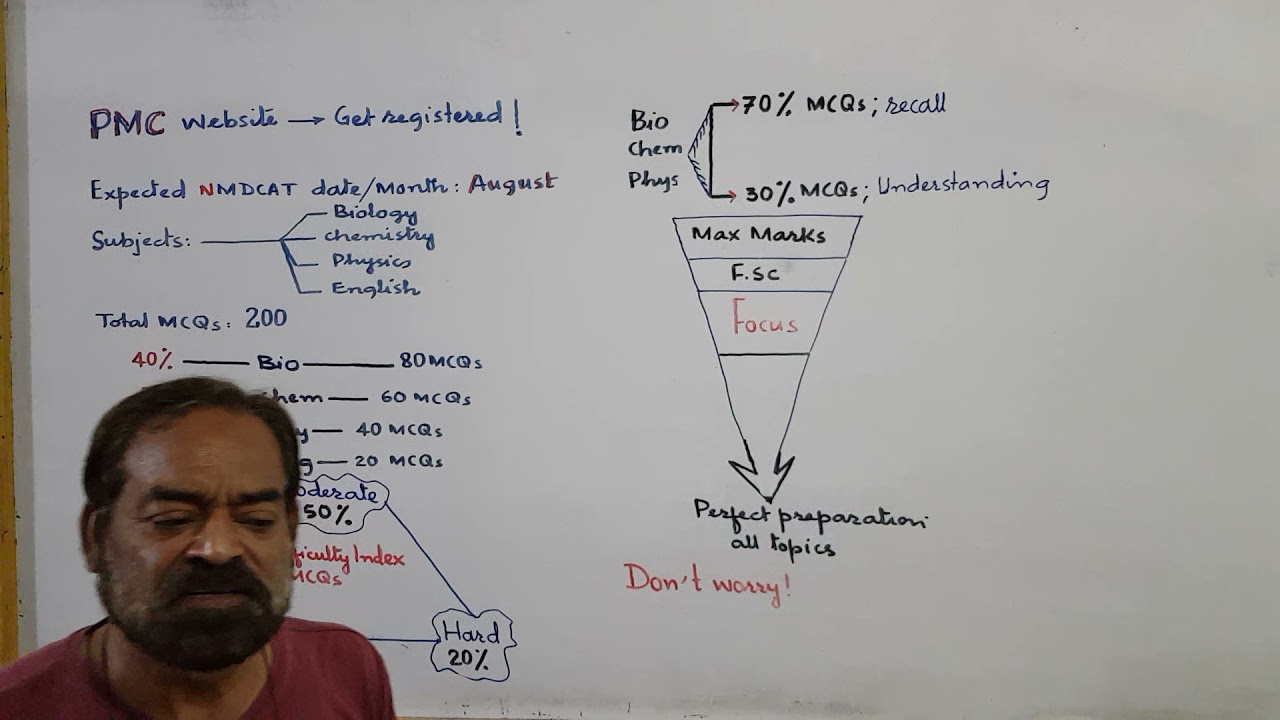 PMC Website → Get registered!
Expected NMDCAT date/Month: August
Subjects:
Biology
chemistry
Physics
English
Total MCQs: 200
40% — Bio — 80 MCQs
hem — 60 MCQs
y — 40 MCQs
g — 20 MCQs
oderate
50%
ficulty Index
MCQs
Hard
20%
Bio
Chem
Phys
70% MCQs; recall
30% MCQs; Understanding
Max Marks
F.Sc
Focus
Perfect preparation
all topics
Don't worry!